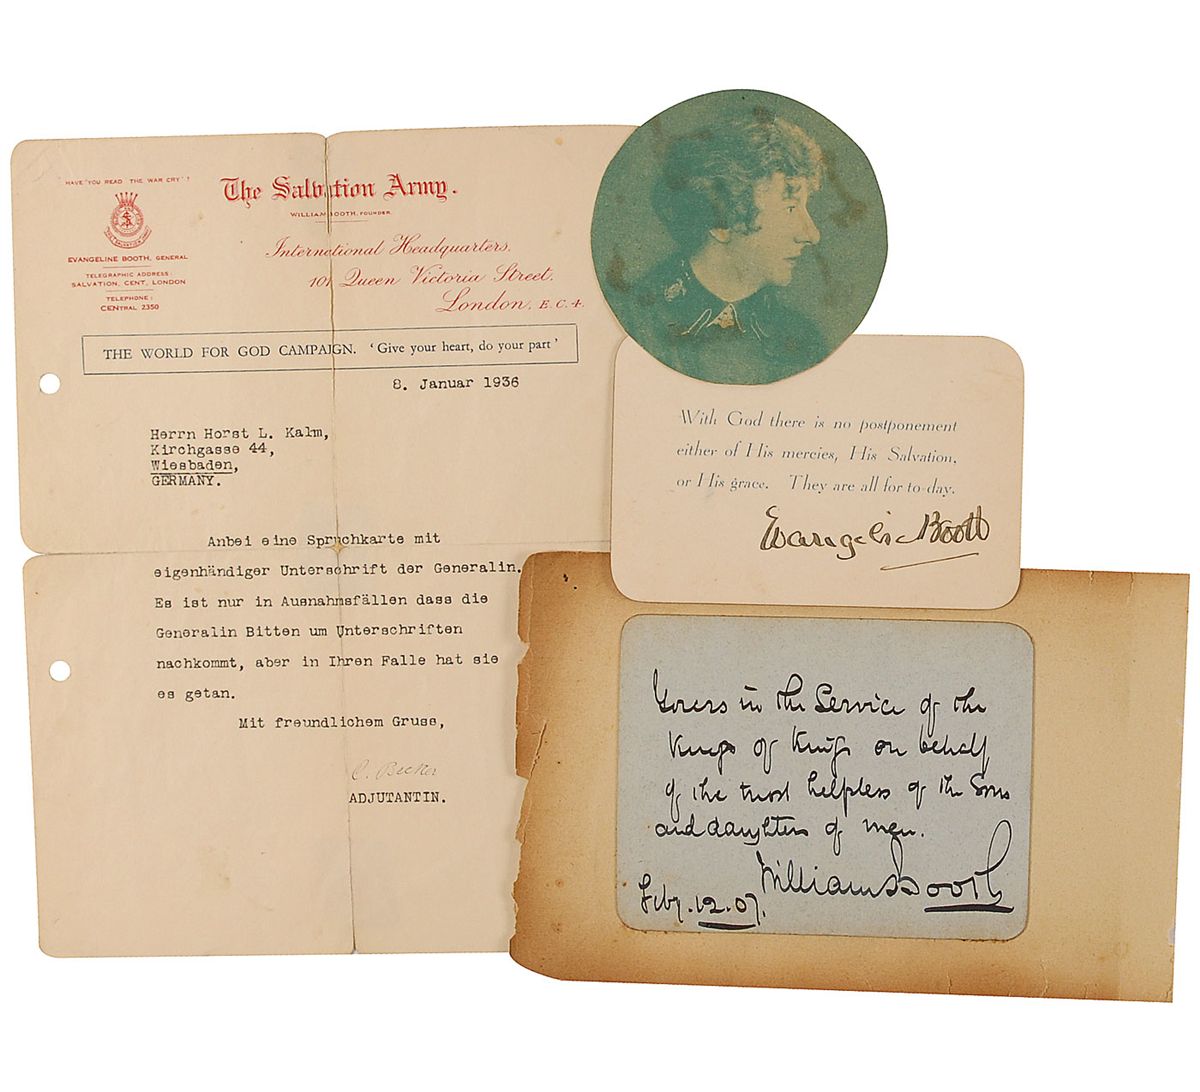 HAVE "YOU READ THE WAR CRY"?
The Salvation Army.
WILLIAM BOOTH, FOUNDER
EVANGELINE BOOTH, GENERAL
TELEGRAPHIC ADDRESS:
SALVATION, CENT, LONDON
TELEPHONE:
CENTRAL 2350
International Headquarters,
101 Queen Victoria Street,
London, E.C.4.
THE WORLD FOR GOD CAMPAIGN. 'Give your heart, do your part'
8. Januar 1936
Herrn Horst L. Kalm,
Kirchgasse 44,
Wiesbaden,
GERMANY.
Anbei eine Spruchkarte mit
eigenhändiger Unterschrift der Generalin.
Es ist nur in Ausnahmsfällen dass die
Generalin Bitten um Unterschriften
nachkommt, aber in Ihren Falle hat sie
es getan.
Mit freundlichem Gruss,
C. Becker
ADJUTANTIN.
With God there is no postponement
either of His mercies, His Salvation,
or His grace. They are all for to-day.
Evangeline Booth
Yours in the Service of the
King of Kings on behalf
of the most helpless of the Sons
and daughters of men.
William Booth
Feby. 12. 07.